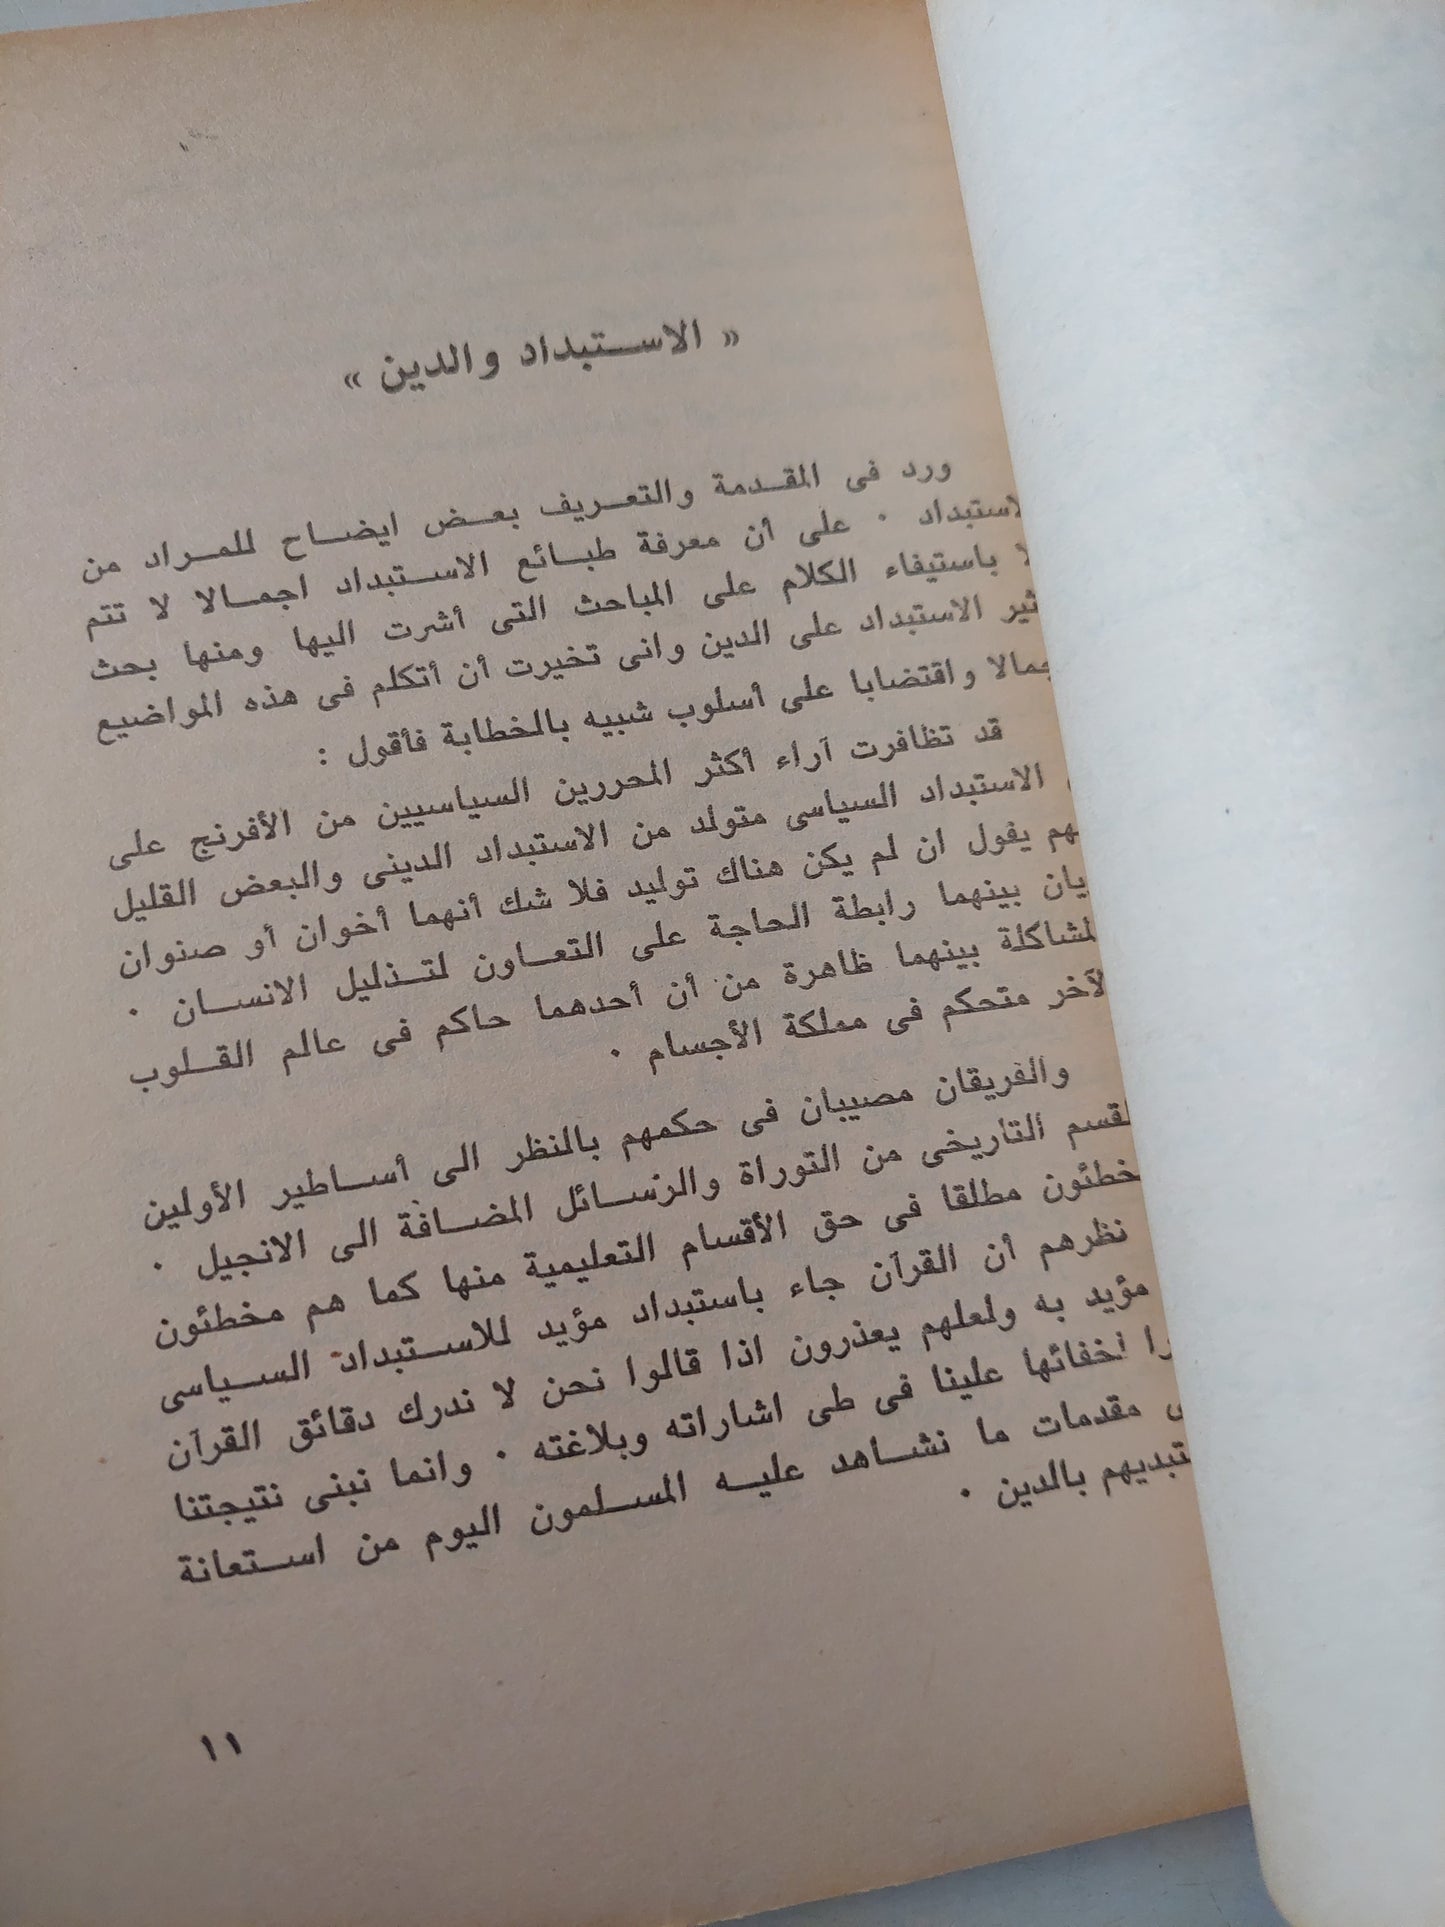 « الاستبداد والدين »
ورد فى المقدمة والتعريف بعض ايضاح للمراد من
لاستبداد . على أن معرفة طبائع الاستبداد اجمالا لا تتم
لا باستيفاء الكلام على المباحث التى أشرت اليها ومنها بحث
ثير الاستبداد على الدين وانى تخيرت أن أتكلم فى هذه المواضيع
جمالا واقتضابا على أسلوب شبيه بالخطابة فأقول :
قد تظافرت آراء أكثر المحررين السياسيين من الأفرنج على
الاستبداد السياسى متولد من الاستبداد الدينى والبعض القليل
هم يقول ان لم يكن هناك توليد فلا شك أنهما أخوان أو صنوان
يان بينهما رابطة الحاجة على التعاون لتذليل الانسان .
لمشاكلة بينهما ظاهرة من أن أحدهما حاكم فى عالم القلوب
لآخر متحكم فى مملكة الأجسام .
والفريقان مصيبان فى حكمهم بالنظر الى أساطير الأولين
لقسم التاريخى من التوراة والرسائل المضافة الى الانجيل .
خطئون مطلقا فى حق الأقسام التعليمية منها كما هم مخطئون
نظرهم أن القرآن جاء باستبداد مؤيد للاستبداد السياسى
مؤيد به ولعلهم يعذرون اذا قالوا نحن لا ندرك دقائق القرآن
را لخفائها علينا فى طى اشاراته وبلاغته . وانما نبنى نتيجتنا
مقدمات ما نشاهد عليه المسلمون اليوم من استعانة
تبديهم بالدين .
١١